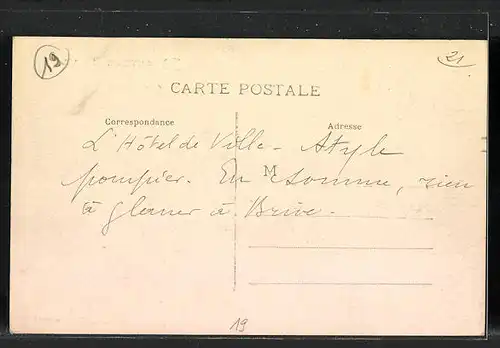 19
21
CARTE POSTALE
Correspondance
Adresse
L'Hôtel de Ville - Style
M
pompier. En somme, rien
à glaner à Brive.
19